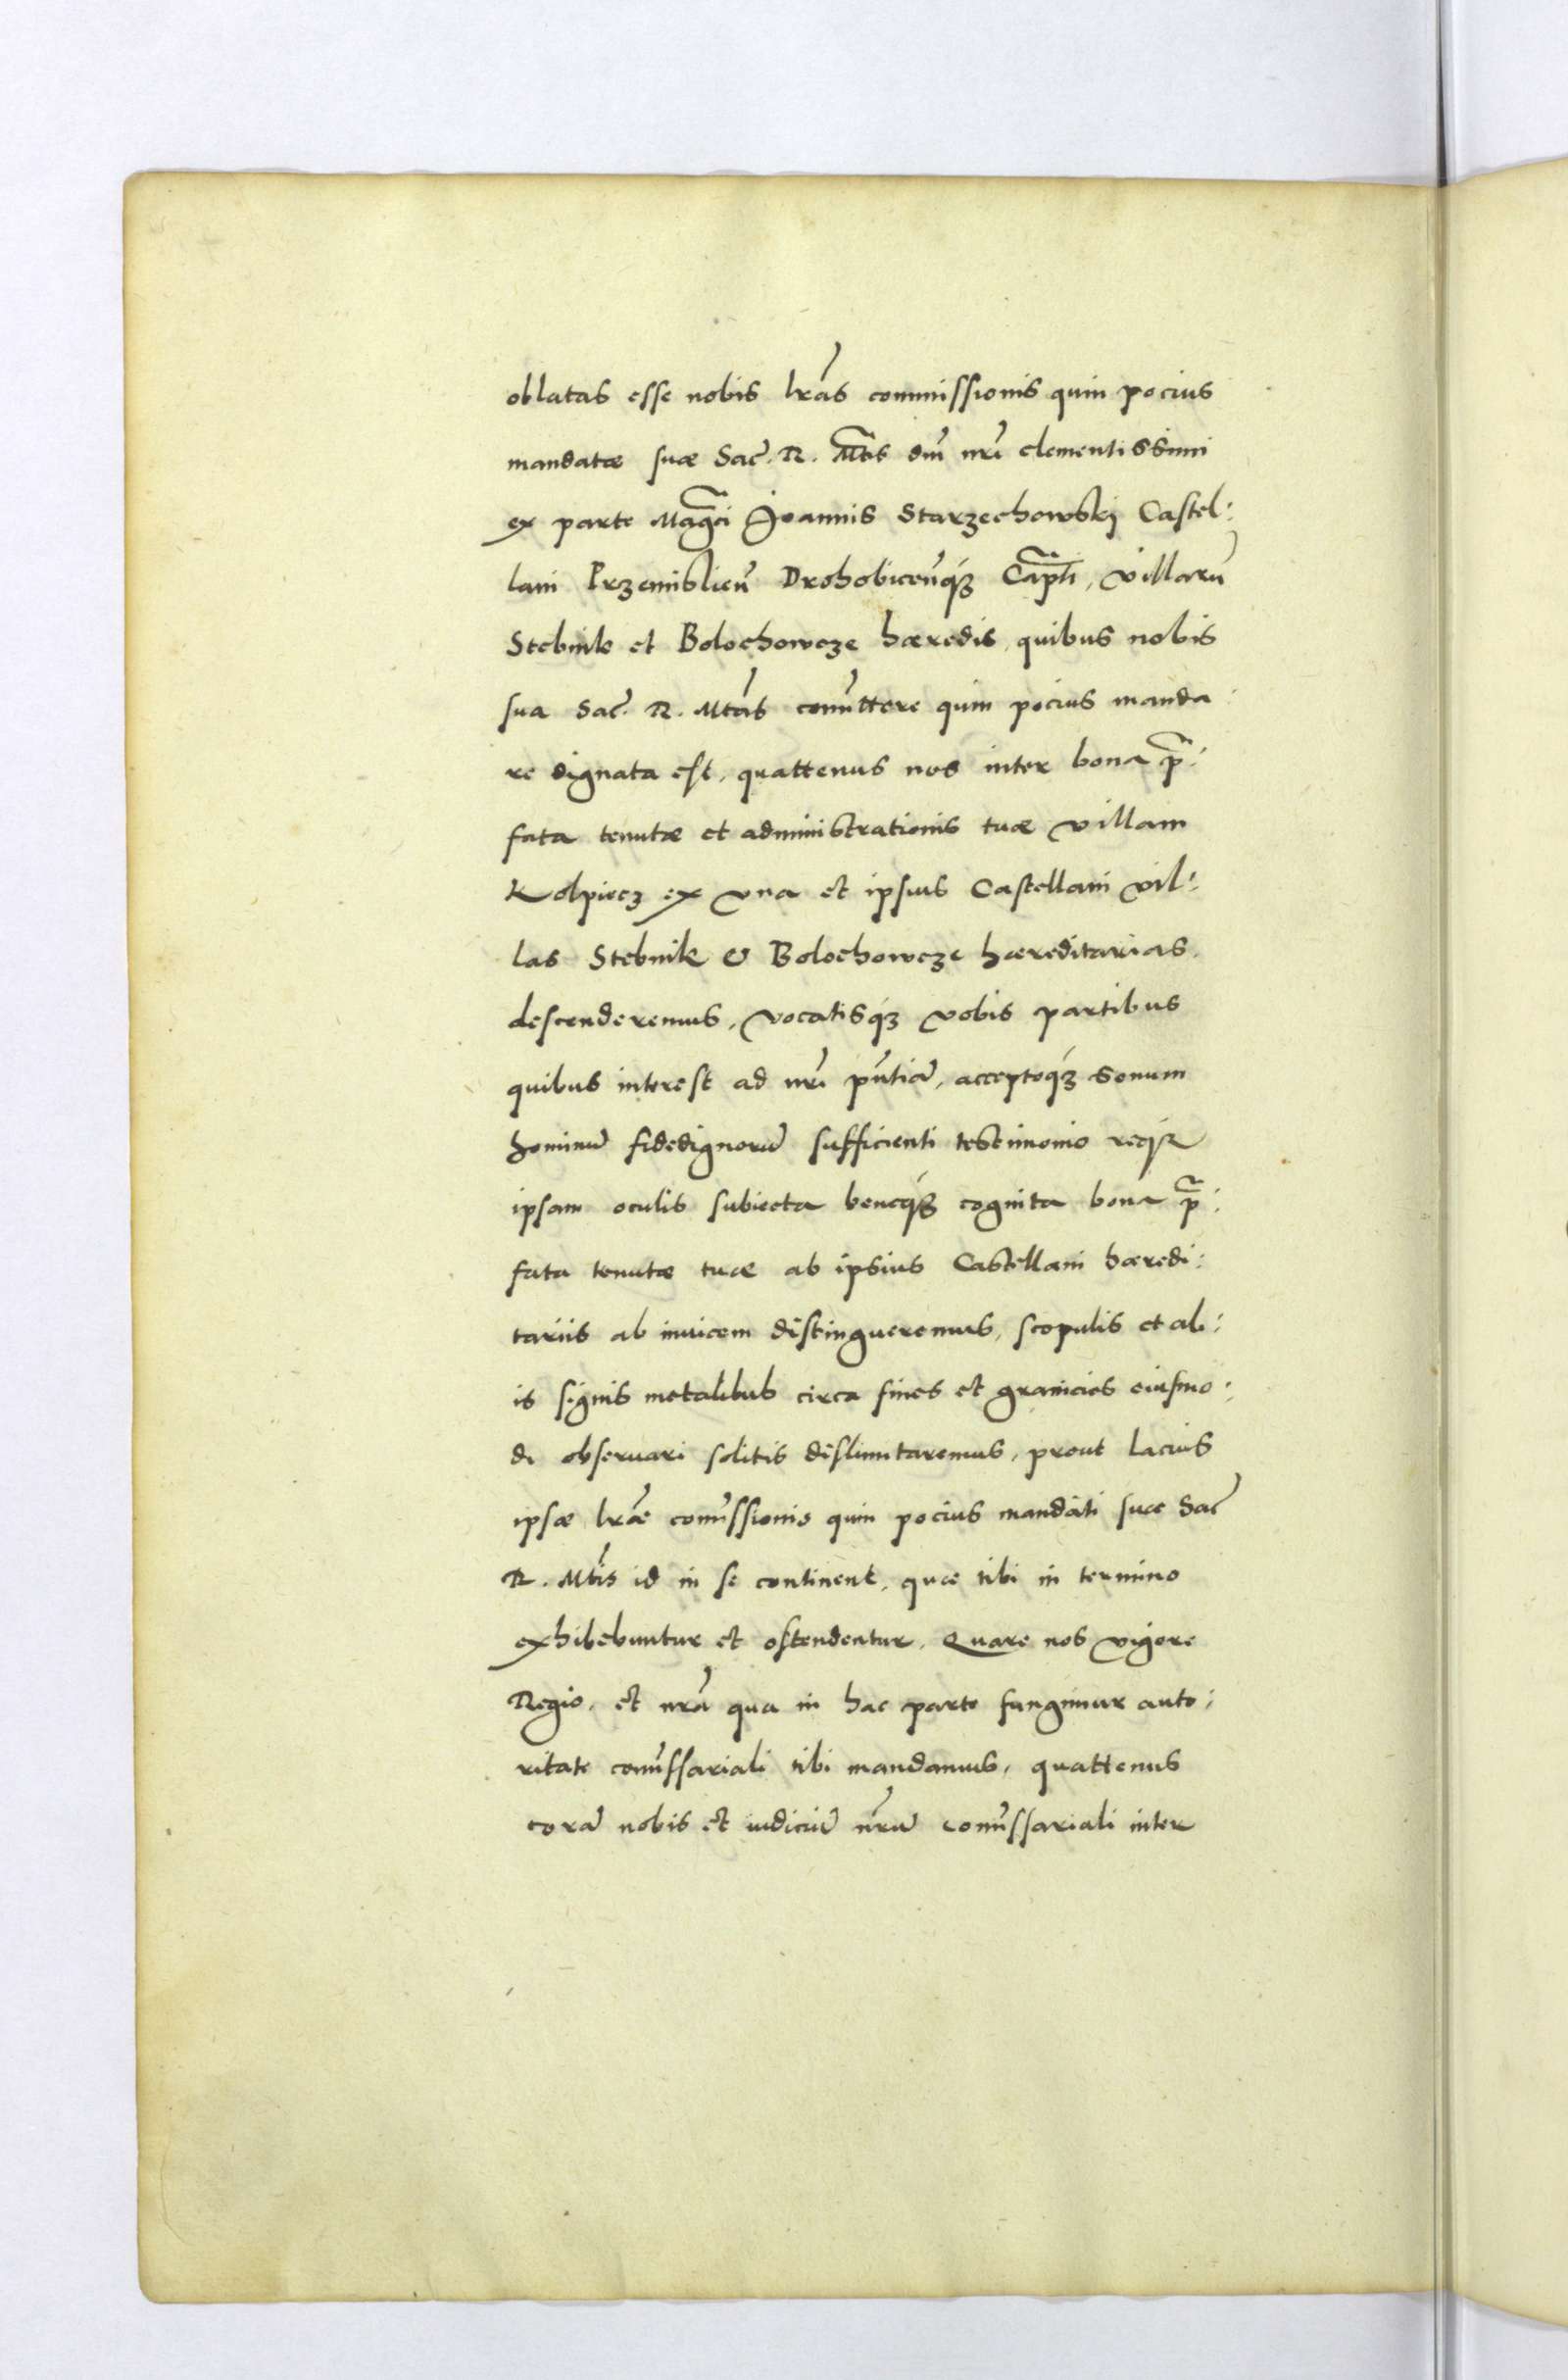 oblatas esse nobis lrãs commissionis quin pocius
mandatæ suæ Sac̃. R. Mt̃is dñi nr̃i clementissimi
ex parte Mag̃ci Joannis Starzechowskj Castel:
lani Przemislien̄ Drohobicen̄q₃ Cap̃ti, villarũ
Stebnik et Bolochowcze hæredis, quibus nobis
sua Sac̃. R. Mtãs com̃ittere quin pocius manda
re dignata est, quattenus nos inter bona p̃:
fata tenutæ et administrationis tuæ villam
Kolpiecz ex vna et ipsius Castellani vil:
las Stebnik & Bolochowcze hæreditarias
descenderemus, vocatisq₃ vobis partibus
quibus interest ad nr̃i pñtiã, acceptoq₃ sonum
hominũ fidedignorũ sufficienti testimonio req₃
ipsam oculis subiecta beneq₃ cognita bona p̃:
fata tenutæ tuæ ab ipsius Castellani hæredi:
tariis ab inuicem distingueremus, scopulis et ali:
is signis metalibus circa fines et granicies eiusmo:
di obseruari solitis dislimitaremus, prout lacius
ipsæ lrãe com̃issionis quin pocius mandati suæ Sac̃
R. Mt̃is id in se continent, quæ tibi in termino
exhibebuntur et ostendentur. Quare nos vigore
Regio, et nrã qua in hac parte fungimur auto:
ritate com̃issariali tibi mandamus, quattenus
corã nobis et iudiciũ nr̃ũ com̃issariali inter